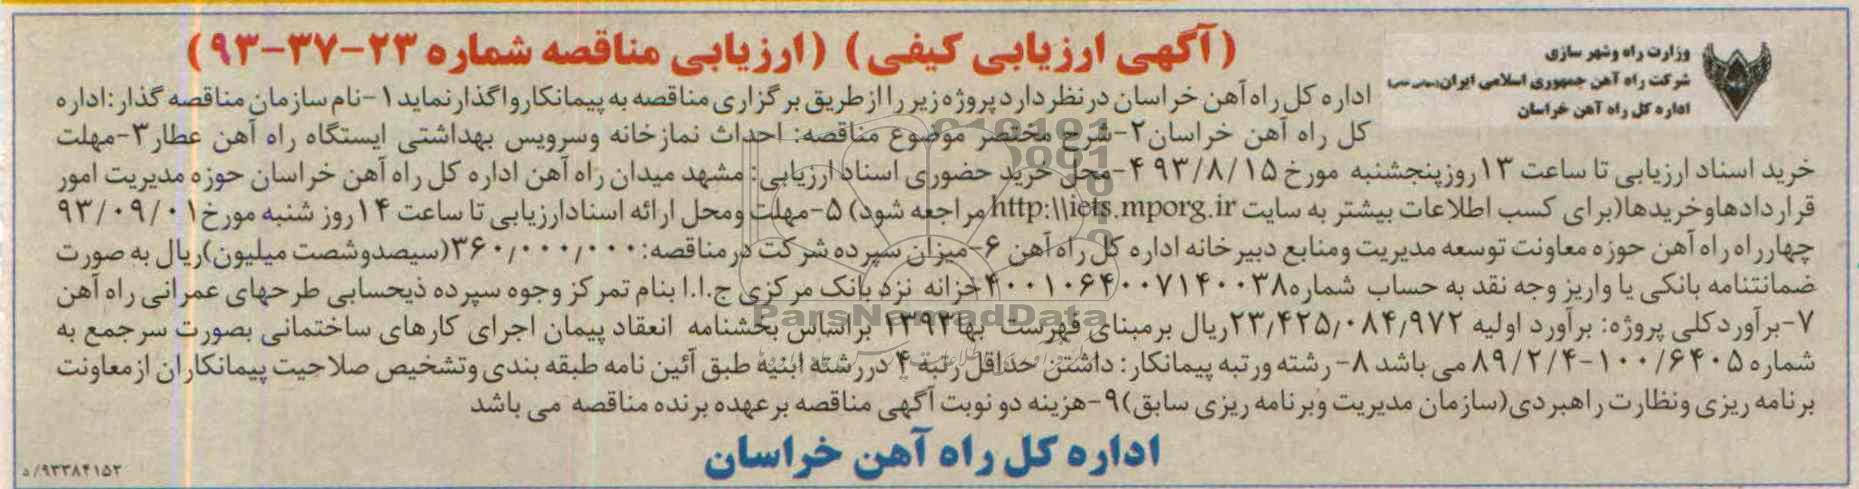 وزارت راه وشهر سازی
شرکت راه آهن جمهوری اسلامی ایران
اداره کل راه آهن خراسان
(آگهی ارزیابی کیفی) (ارزیابی مناقصه شماره ۲۳-۳۷-۹۳)
اداره کل راه آهن خراسان در نظر دارد پروژه زیر را از طریق برگزاری مناقصه به پیمانکار واگذار نماید ۱-نام سازمان مناقصه گذار:اداره
کل راه آهن خراسان۲-شرح مختصر موضوع مناقصه: احداث نمازخانه وسرویس بهداشتی ایستگاه راه آهن عطار۳-مهلت
خرید اسناد ارزیابی تا ساعت ۱۳روزپنجشنبه مورخ ۹۳/۸/۱۵ ۴-محل خرید حضوری اسناد ارزیابی: مشهد میدان راه آهن اداره کل راه آهن خراسان حوزه مدیریت امور
قراردادهاوخریدها(برای کسب اطلاعات بیشتر به سایت http:\\iets.mporg.ir مراجعه شود) ۵-مهلت ومحل ارائه اسنادارزیابی تا ساعت ۱۴روز شنبه مورخ۹۳/۰۹/۰۱
چهارراه راه آهن حوزه معاونت توسعه مدیریت ومنابع دبیرخانه اداره کل راه آهن ۶-میزان سپرده شرکت در مناقصه:۳۶۰/۰۰۰/۰۰۰(سیصدوشصت میلیون)ریال به صورت
ضمانتنامه بانکی یا واریز وجه نقد به حساب شماره۴۰۰۱۰۶۴۰۰۷۱۴۰۰۳۸خزانه نزد بانک مرکزی ج.ا.ا بنام تمرکز وجوه سپرده ذیحسابی طرحهای عمرانی راه آهن
۷-برآوردکلی پروژه: برآورد اولیه ۲۳/۴۲۵/۰۸۴/۹۷۲ریال برمبنای فهرست بها۱۳۹۳ براساس بخشنامه انعقاد پیمان اجرای کارهای ساختمانی بصورت سرجمع به
شماره ۱۰۰/۶۴۰۵-۸۹/۲/۴ می باشد ۸-رشته ورتبه پیمانکار: داشتن حداقل رتبه ۴ دررشته ابنیه طبق آئین نامه طبقه بندی وتشخیص صلاحیت پیمانکاران ازمعاونت
برنامه ریزی ونظارت راهبردی(سازمان مدیریت وبرنامه ریزی سابق)۹-هزینه دو نوبت آگهی مناقصه برعهده برنده مناقصه می باشد
اداره کل راه آهن خراسان
۵/۹۳۳۸۴۱۵۲
ParsNamadData